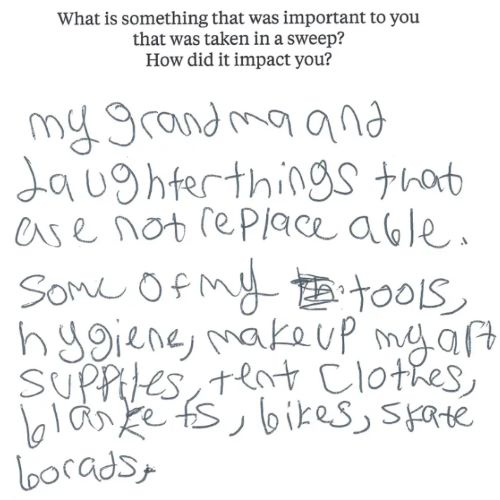 What is something that was important to you
that was taken in a sweep?
How did it impact you?
my grandma and
daughter things that
are not replace able.
Some of my tools,
hygiene, makeup my art
supplies, tent clothes,
blankets, bikes, skate
borads,